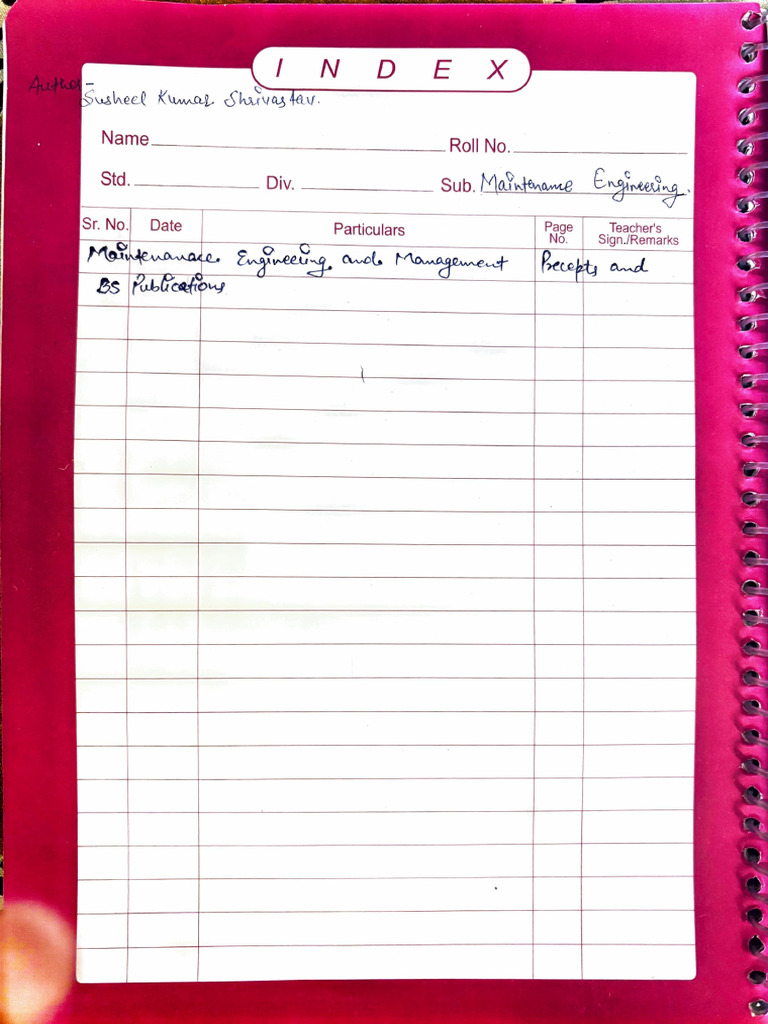 I N D E X
Author-
Susheel Kumar Shrivastav.
Name Roll No.
Std. Div. Sub. Maintename Engineering.
Sr. No. Date Particulars Page No. Teacher's Sign./Remarks
Maintenanace Engineering and Management Precepts and
BS Publications